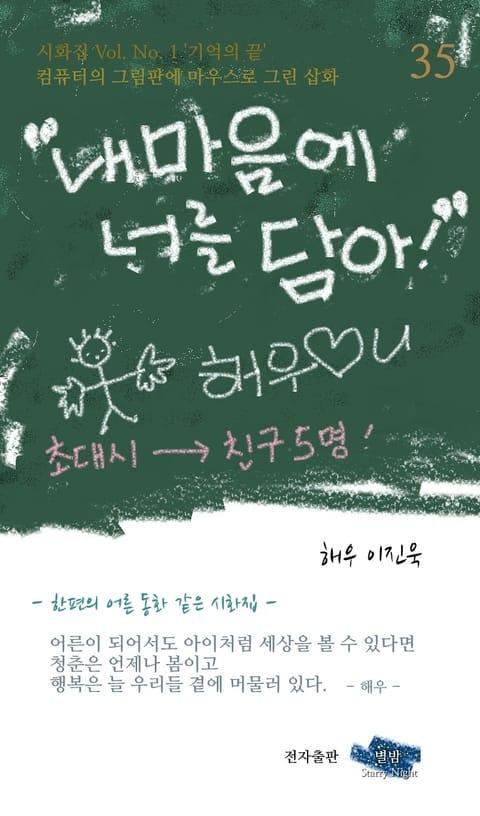 시화집 Vol. No. 1 '기억의 끝'
컴퓨터의 그림판에 마우스로 그린 삽화
35
"내마음에
너를 담아!"
해우♡너
초대시 → 친구 5명!
해우 이진욱
- 한편의 어른 동화 같은 시화집 -
어른이 되어서도 아이처럼 세상을 볼 수 있다면
청춘은 언제나 봄이고
행복은 늘 우리들 곁에 머물러 있다. - 해우 -
전자출판 별밤
Starry Night